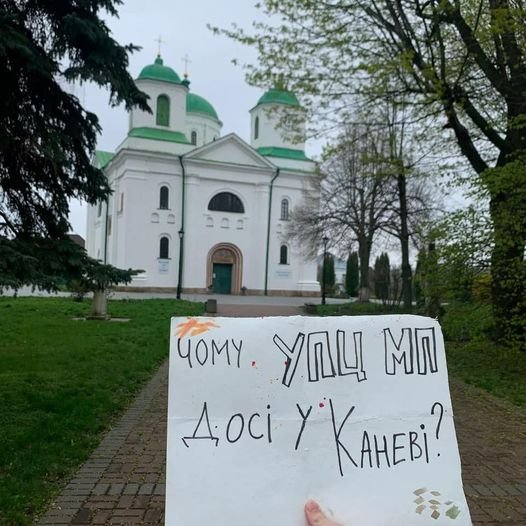 ЧОМУ УПЦ МП
ДОСІ У КАНЕВІ?